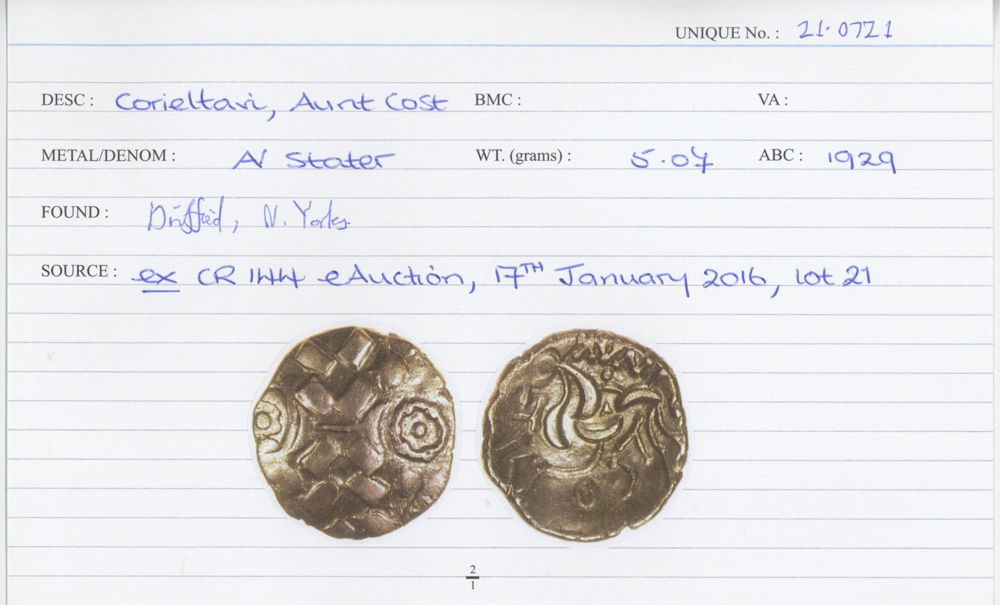 UNIQUE No. : 21.0721
DESC : Corieltavi, Aunt Cost BMC : VA :
METAL/DENOM : AV Stater WT. (grams) : 5.07 ABC : 1929
FOUND : Driffield, N. Yorks.
SOURCE : ex CR 144 eAuction, 17TH January 2016, lot 21
2
1